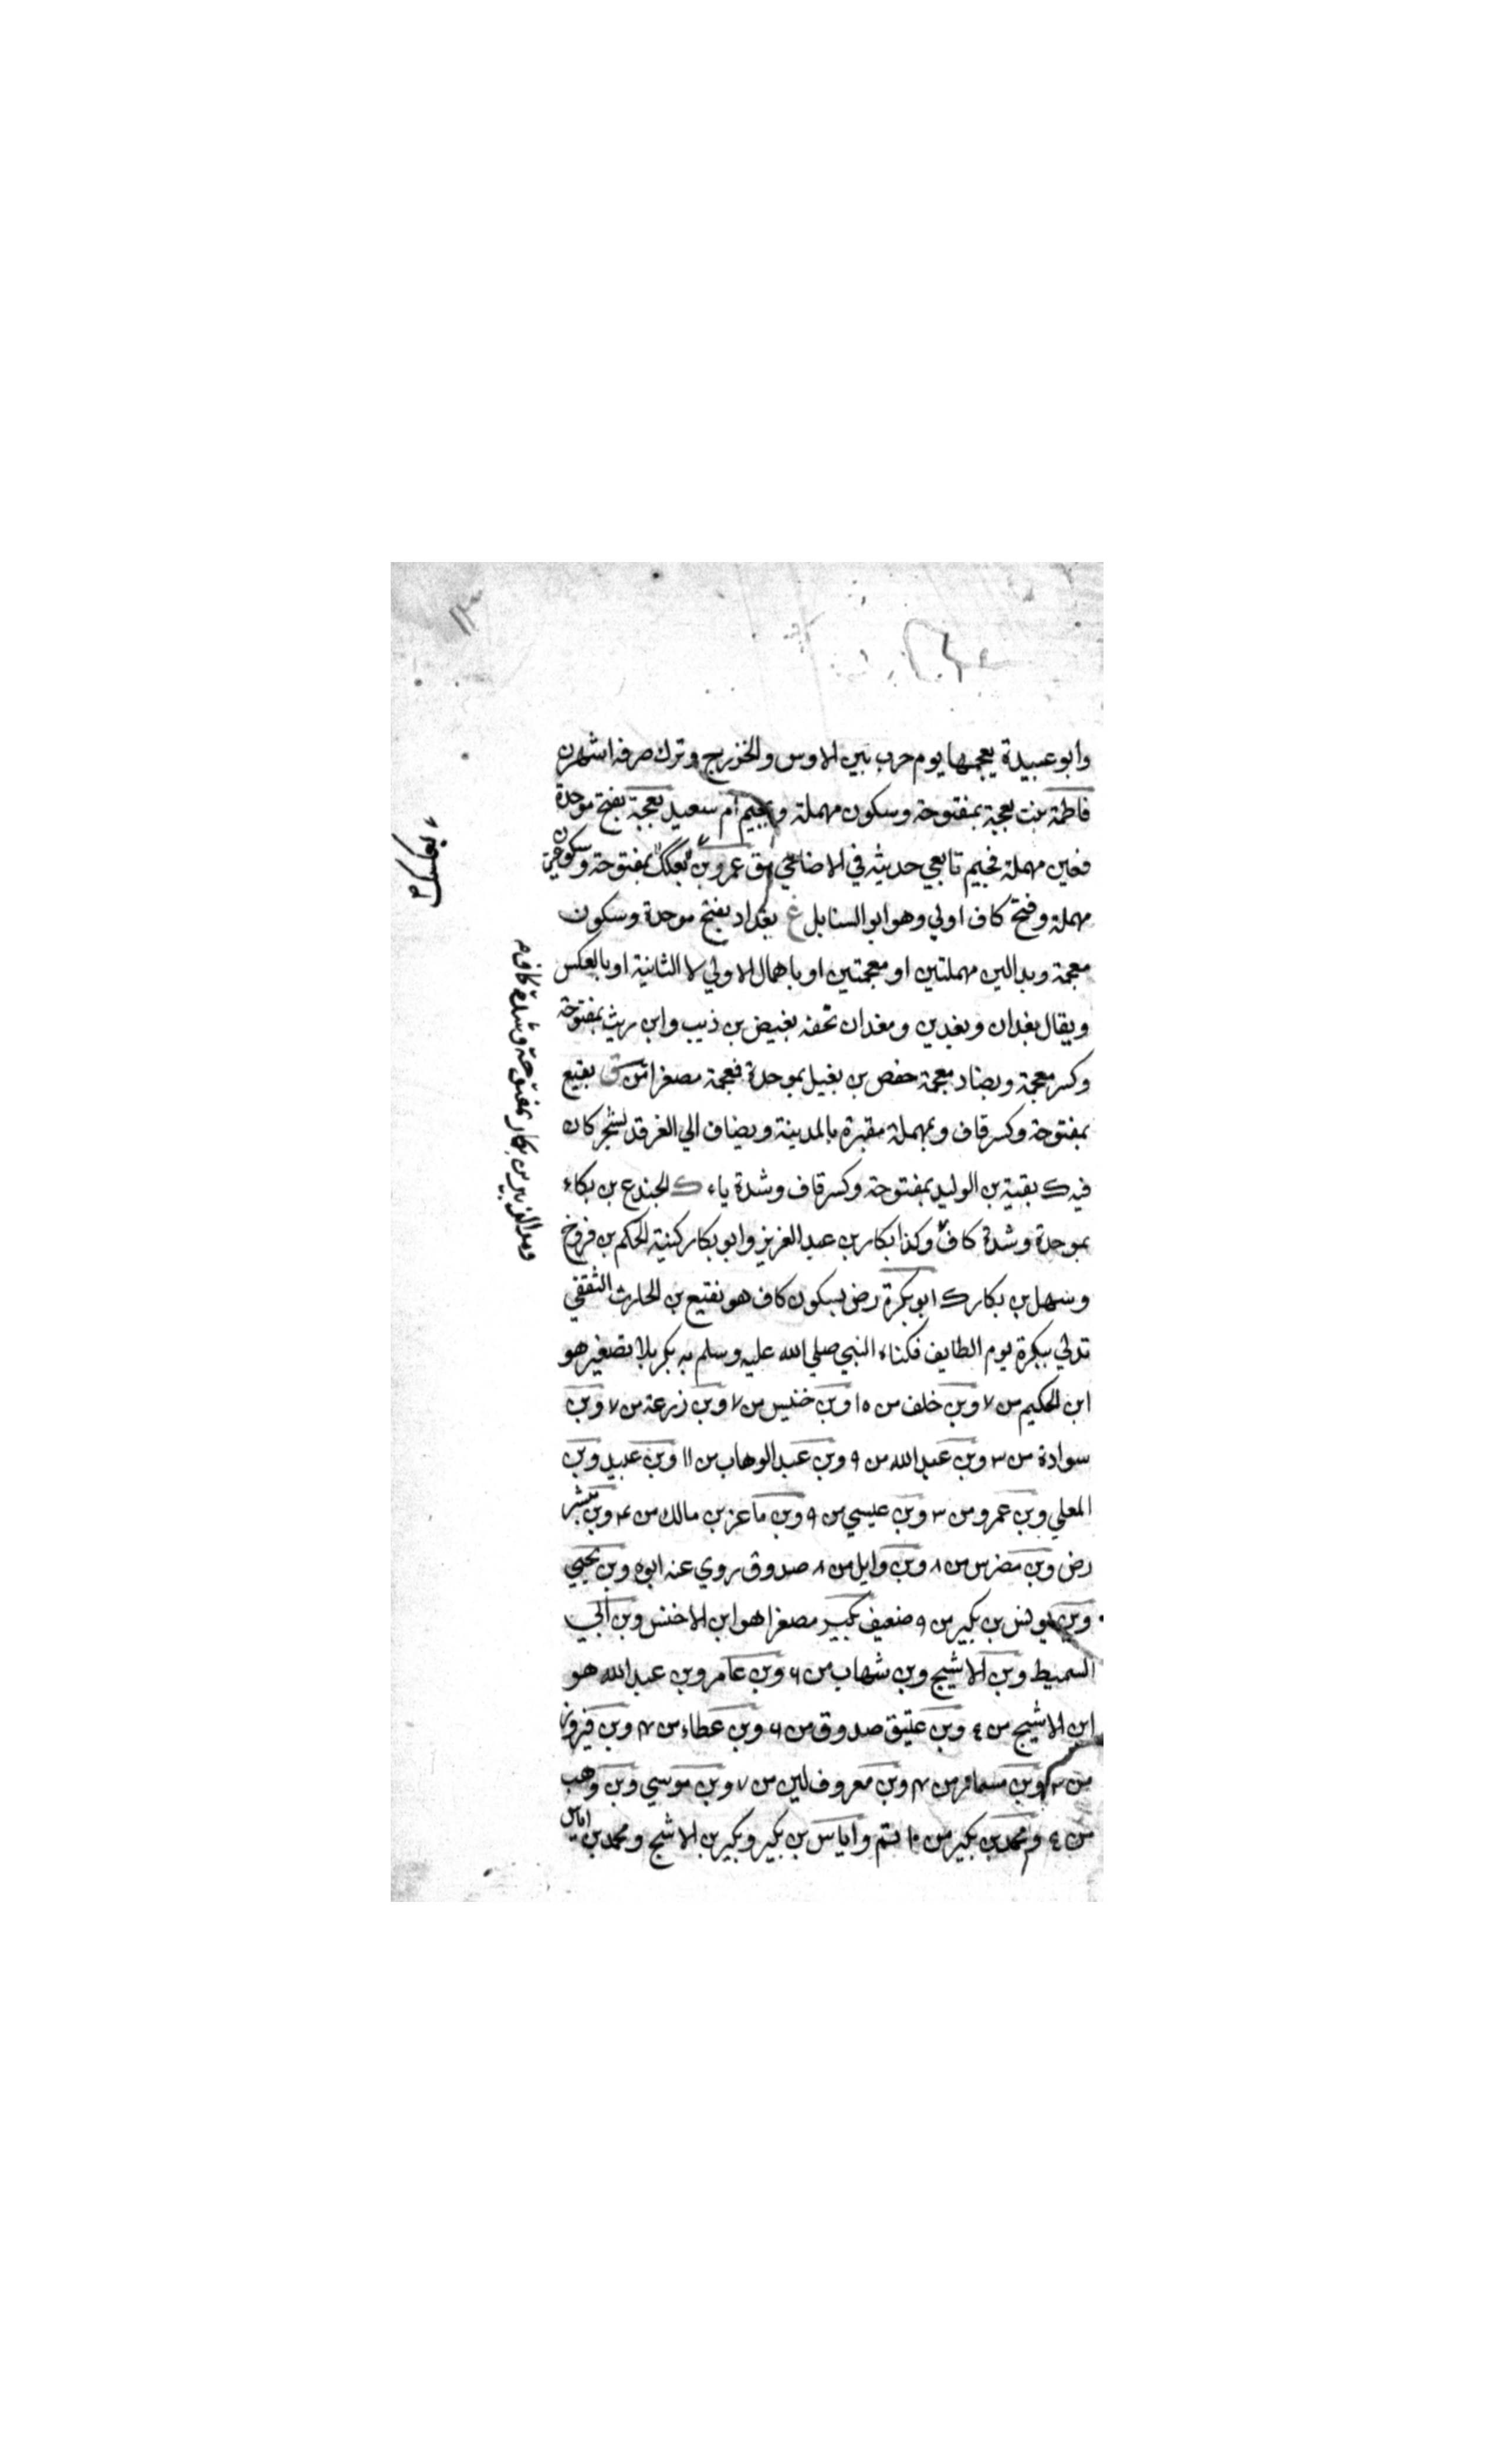 وابو عبيدة يعجمها يوم حرب بين الاوس والخزرج وترك صرفه اشهر ن
فاطمة بنت بعجة بمفتوحة وسكون مهملة وبجيم ام سعيد بعجة بفتح موحدة
فعين مهملة فجيم تابعي حديثه في الاضاحي عمرو بن بعكك بمفتوحة وسكون عين
مهملة وفتح كاف اولي وهو ابو السنابل غ بغداد بفتح موحدة وسكون
معجمة وبدالين مهملتين او معجمتين او باهمال الاولي لا الثانية او بالعكس
ويقال بغدان وبغدين ومغدان تحفه بغيض بن ذيب وابن ريث بمفتوحة
وكسر معجمة وبضاد معجمة حفص بن بغيل بموحدة فمعجمة مصغرا ق بقيع
بمفتوحة وكسر قاف وبمهملة مقبرة بالمدينة ويضاف الي الغرقد لشجر كان
فيه ك بقية بن الوليد بمفتوحة وكسر قاف وشدة ياء ك الجندع بن بكاء
بموحدة وشدة كاف وكذا بكار بن عبد العزيز وابو بكار كنية الحكم بن فروخ
وسهل بن بكار ك ابو بكرة رض بسكون كاف هو نفيع بن الحارث الثقفي
تدلي ببكرة يوم الطايف فكناه النبي صلي الله عليه وسلم به بكر بلا تصغير هو
ابن الحكيم من ٧ وبن خلف من ١٥ وبن خنيس من ٧ وبن زرعة من ٧ وبن
سوادة من ٣ وبن عبد الله من ٩ وبن عبد الوهاب من ١١ وبن عبيد وبن
المعلي وبن عمرو من ٣ وبن عيسي من ٩ وبن ماعز بن مالك من ٤ وبن مبشر
رض وبن مضرس من ٨ وبن وايل من ٨ صدوق روي عنه ابوه وبن يحيي
وبن يونس بن بكير من ٩ ضعيف بكير مصغرا هو ابن الاخنس وبن ابي
السميط وبن الاشج وبن شهاب من ٦ وبن عامر وبن عبد الله هو
ابن الاشج من ٤ وبن عتيق صدوق من ٦ وبن عطاء من ٤ وبن فيروز
من ٣ وبن مسمار من ٤ وبن معروف لين من ٧ وبن موسي وبن وهب
من ٤ ومحمد بن بكير من ١٠ واياس بن بكير وبكير بن الاشج ومحمد بن اياس
والزبير بن بكار بمفتوحة وشدة كاف م
بعكك